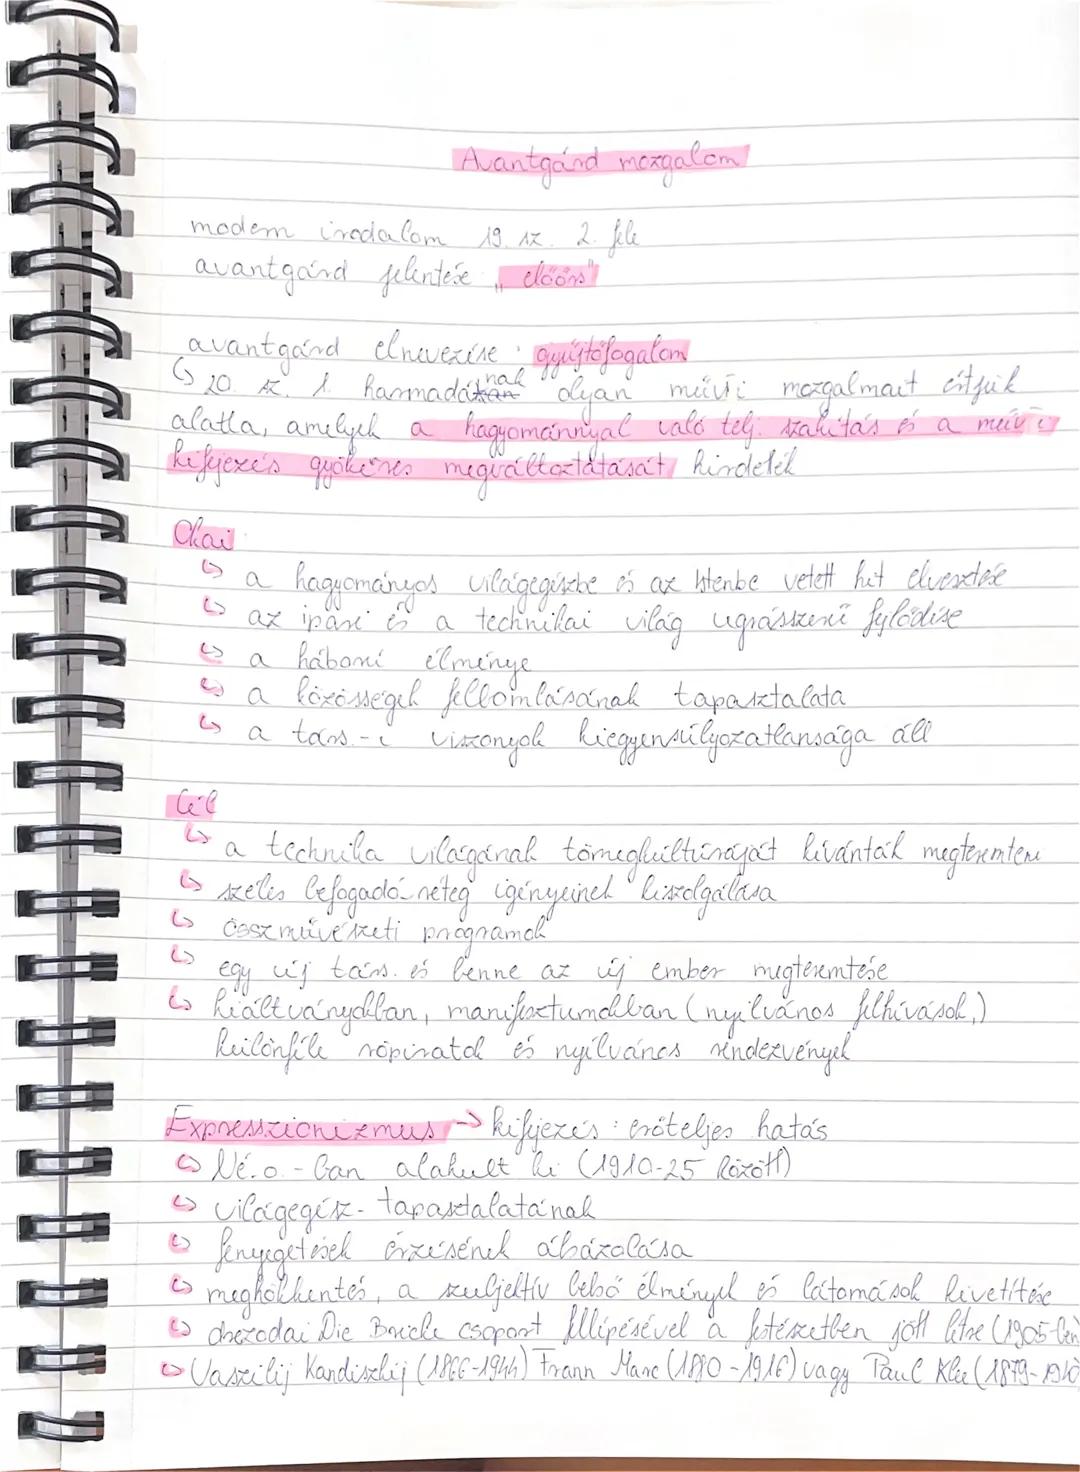 Avantgárd mozgalom
modern irodalom 19. sz. 2. fele
avantgárd jelentése „előőrs"
avantgárd elnevezése: gyűjtőfogalom
↳ 20. sz. 1. harmadának olyan műv-i mozgalmait értjük
alatta, amelyek a hagyománnyal való telj. szakítás és a műv-i
kifejezés gyökeres megváltoztatását hirdették
Okai
↳ a hagyományos világegészbe és az Istenbe vetett hit elvesztése
↳ az ipari és a technikai világ ugrásszerű fejlődése
↳ a háború élménye
↳ a közösségek felbomlásának tapasztalata
↳ a társ.-i viszonyok kiegyensúlyozatlansága áll
Cél
↳ a technika világának tömegkultúráját kívánták megteremteni
↳ széles befogadó réteg igényeinek kiszolgálása
↳ összművészeti programok
↳ egy új társ. és benne az új ember megteremtése
↳ kiáltványokban, manifesztumokban (nyilvános felhívások,)
különféle röpiratok és nyilvános rendezvények
Expresszionizmus → kifejezés: erőteljes hatás
↳ Né.o.-ban alakult ki (1910-25 között)
↳ világegész-tapasztalatának
↳ fenyegetések érzésének ábázolása
↳ meghökkentés, a szubjektív belső élmények és látomások kivetítése
↳ drezdai Die Brücke csoport fellépésével a festészetben jött létre (1905-ben
↳ Vaszilij Kandiszkij (1866-1944) Frann Marc (1880-1916) vagy Paul Klee (1879-1940)